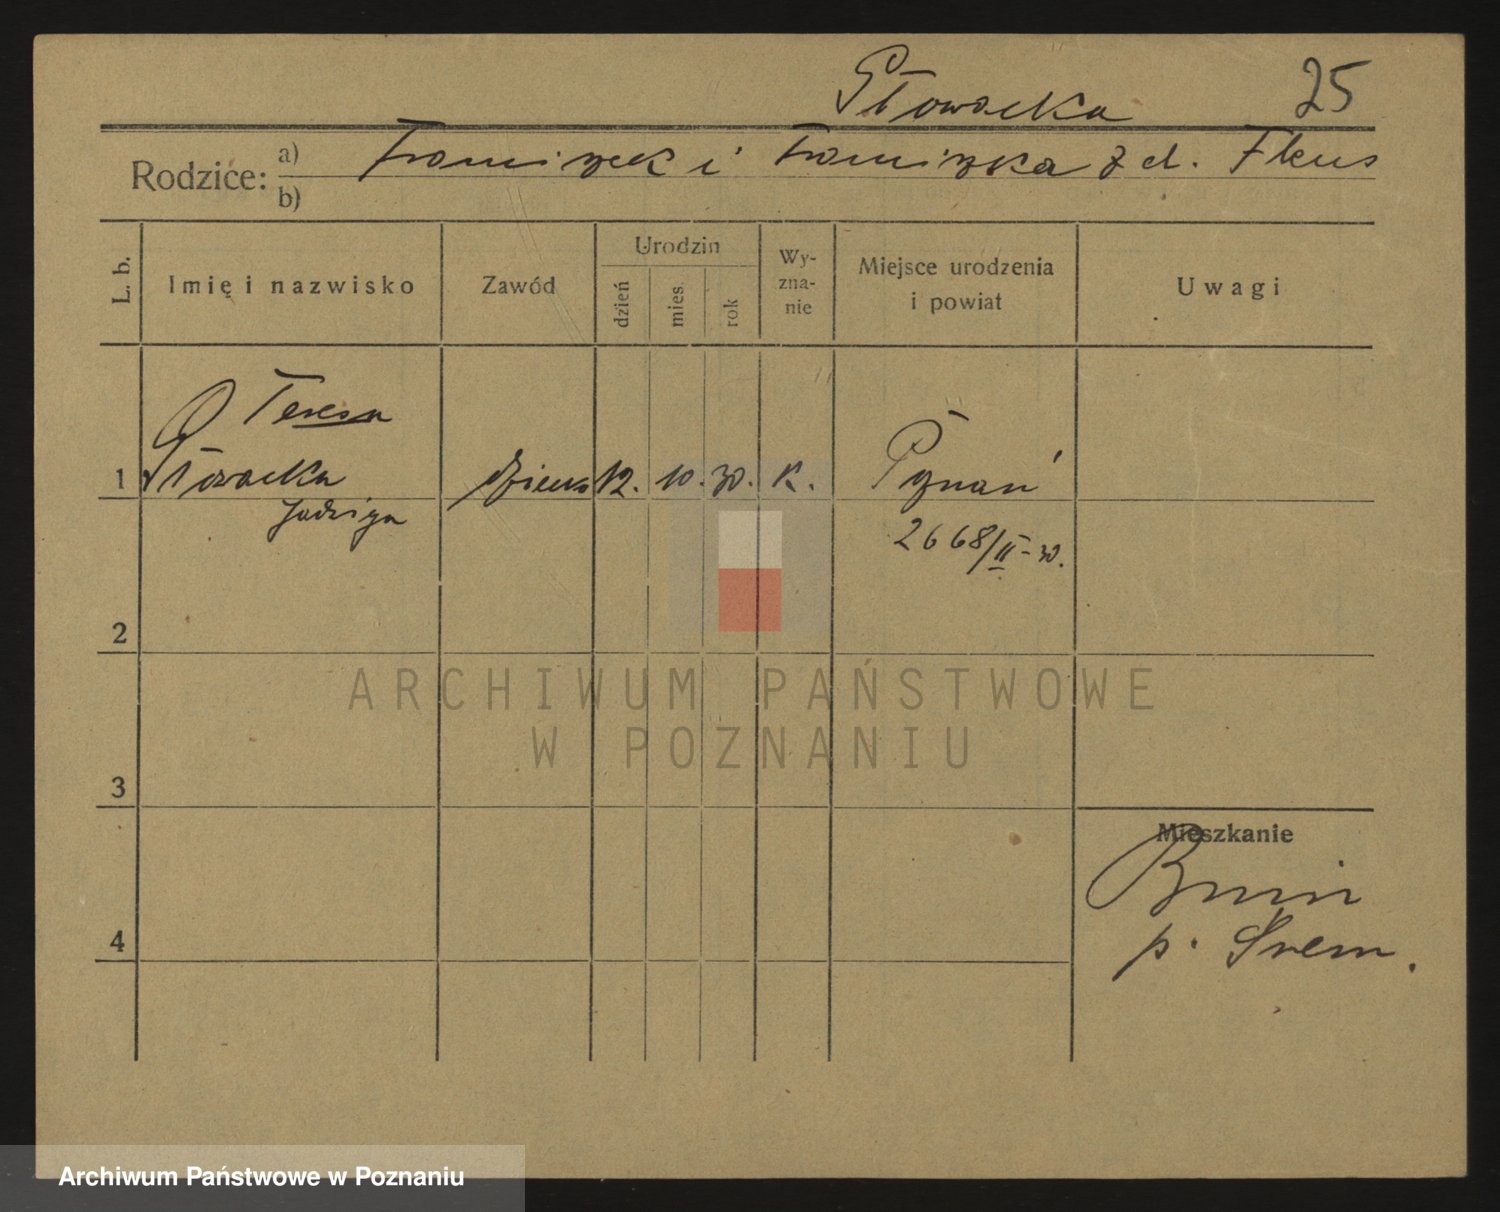 Słowacka 25
Rodzice: a) Franciszek i Franciszka z d.
b)
L. b. Imię i nazwisko Zawód Urodzin dzień mies. rok Wy-zna-nie Miejsce urodzenia i powiat Uwagi
Teresa
1 Słowacka 12. 10. 30. K. Poznań
Jadwiga 2668/II-30.
2
ARCHIWUM PAŃSTWOWE
W POZNANIU
3
Mieszkanie
Bnin
4 p. Śrem.
Archiwum Państwowe w Poznaniu